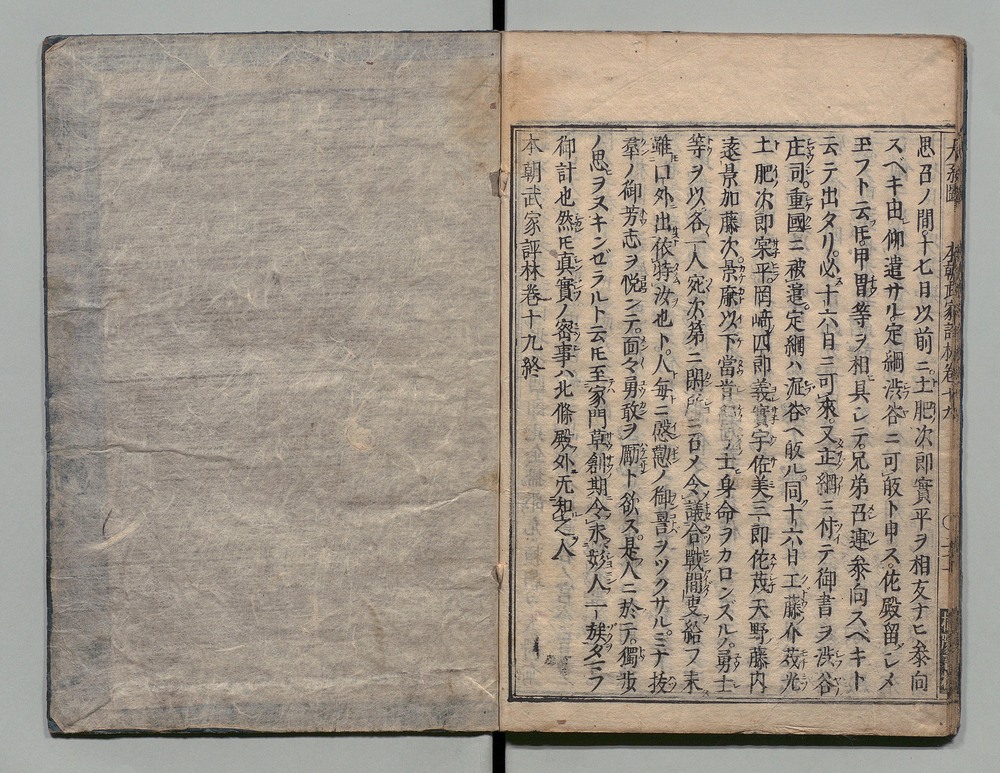 思召ノ間十七日以前ニ土肥次郎實平ヲ相友ナヒ参向
スベキ由仰遣サル定綱渋谷ニ可皈ト申ス佐殿留シメ
玉フト云𪜈甲冑等ヲ相具シテ兄弟召連参向スベキト
云テ出タリ必十六日ニ可來又正綱ニ付テ御書ヲ渋谷
庄司重國ニ被遣定綱ハ渋谷ヘ皈ル同十六日工藤介茂光
土肥次郎実平岡﨑四郎義實宇佐美三郎佐茂天野藤内
遠景加藤次景廉以下當世ノ士身命ヲカロンズルノ勇士
等ヲ以各一人宛次第ニ閑所ニ召メ今議合戰間叓給フ未
雖口外出依特汝也ト人毎ニ慇懃ノ御詈ヲツクサルミナ抜
羣ノ御芳志ヲ悦ンテ面々勇敢ヲ勵ト欲ス是人ニ於テ獨歩
ノ思ヲヌキンゼラルト云𪜈至家門草創期令求
御計也然𪜈真實ノ密事ハ北條殿外无知之人
本朝武家評林巻十九終
本朝武家評林巻十九